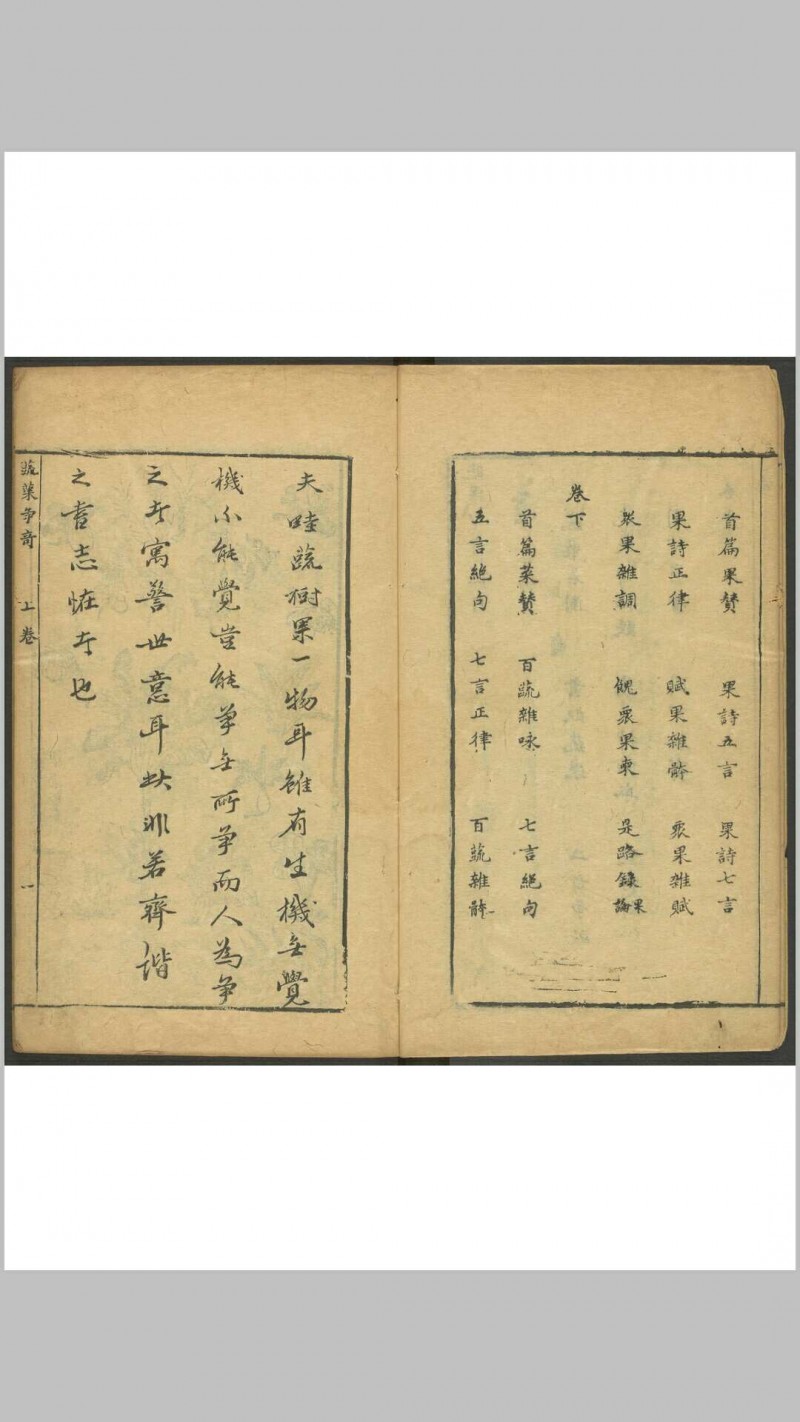 首篇果賛 果詩五言 果詩七言
果詩正律 賦果雜體 眾果雜賦
眾果雜調 傀眾果束 是路錄果論
卷下
首篇菜賛 百蔬雜咏 七言絕句
五言絕句 七言正律 百蔬雜體
夫畦蔬樹果一物耳雖有生機无覺
機不能覺豈能爭无所爭而人為爭
之者寓警世意耳此非若齊諧
之書志恠者也
蔬菓争奇 上卷 一